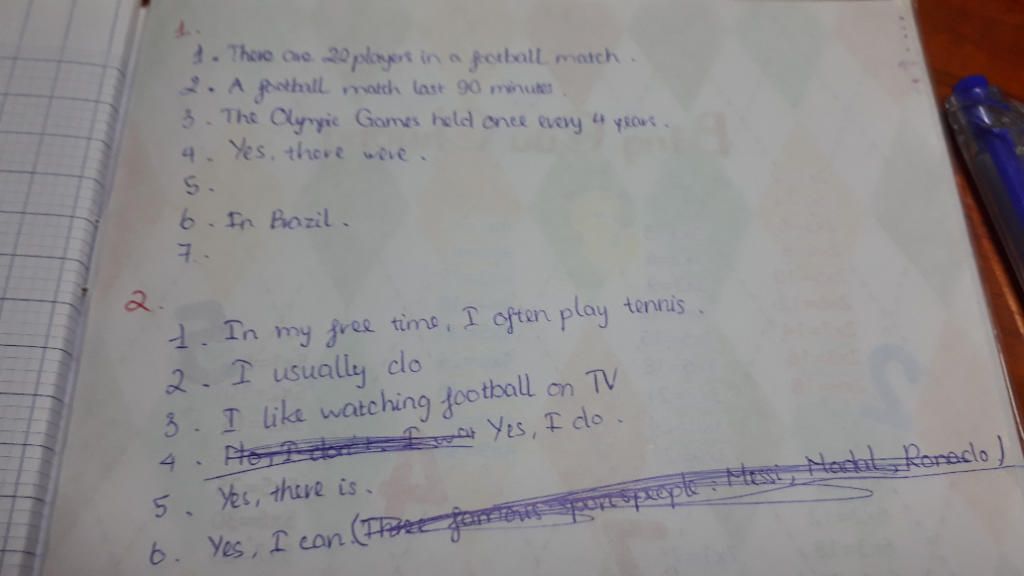 1.
1. There are 20 players in a football match.
2. A football match last 90 minutes.
3. The Olympic Games held once every 4 years.
4. Yes, there were.
5.
6. In Brazil.
7.
2.
1. In my free time, I often play tennis.
2. I usually do
3. I like watching football on TV
4. No, I don't. I wat Yes, I do.
5. Yes, there is.
6. Yes, I can (Three famous sportspeople: Messi, Nadal, Ronaldo)